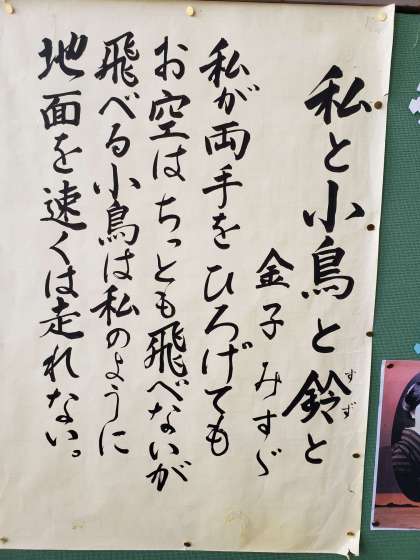 私と小鳥と鈴と
すず
金子みすゞ
私が両手をひろげても
お空はちっとも飛べないが
飛べる小鳥は私のように
地面を速くは走れない。